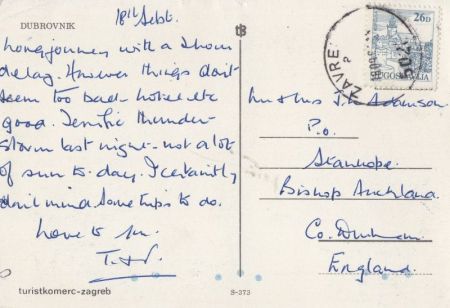 DUBROVNIK
18th Sept.
Long journey with a 2 hour
delay. However things don't
seem too bad - hotel etc
good. Terrific thunder-
storm last night - not a lot
of sun to-day. I certainly
don't mind. Some trips to do.
Love to
T.
turistkomerc-zagreb
S-373
26D
JUGOSLAVIJA
Mr & Mrs J. Adamson
P.O.
Stanhope.
Bishop Auckland.
Co. Durham.
England.